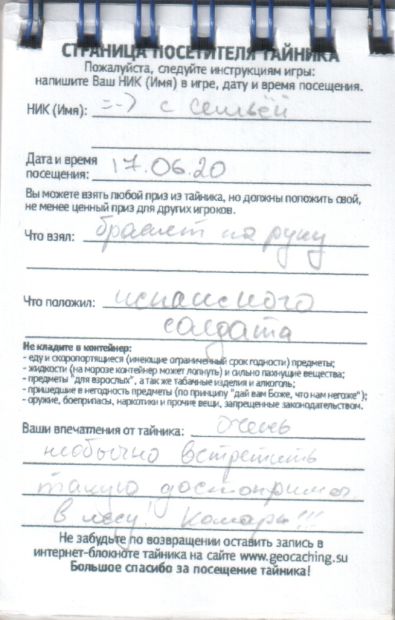 СТРАНИЦА ПОСЕТИТЕЛЯ ТАЙНИКА
Пожалуйста, следуйте инструкциям игры:
напишите Ваш НИК (Имя) в игре, дату и время посещения.
НИК (Имя): =-) с семьёй
Дата и время
посещения: 17.06.20
Вы можете взять любой приз из тайника, но должны положить свой,
не менее ценный приз для других игроков.
Что взял: браслет на руку
Что положил: испанского
солдата
Не кладите в контейнер:
- еду и скоропортящиеся (имеющие ограниченный срок годности) предметы;
- жидкости (на морозе контейнер может лопнуть) и сильно пахнущие вещества;
- предметы "для взрослых", а так же табачные изделия и алкоголь;
- пришедшие в негодность предметы (по принципу "дай вам Боже, что нам негоже");
- оружие, боеприпасы, наркотики и прочие вещи, запрещенные законодательством.
Ваши впечатления от тайника: очень
необычно встретить
такую достоприм.
в лесу! Комары!!!
Не забудьте по возвращении оставить запись в
интернет-блокноте тайника на сайте www.geocaching.su
Большое спасибо за посещение тайника!